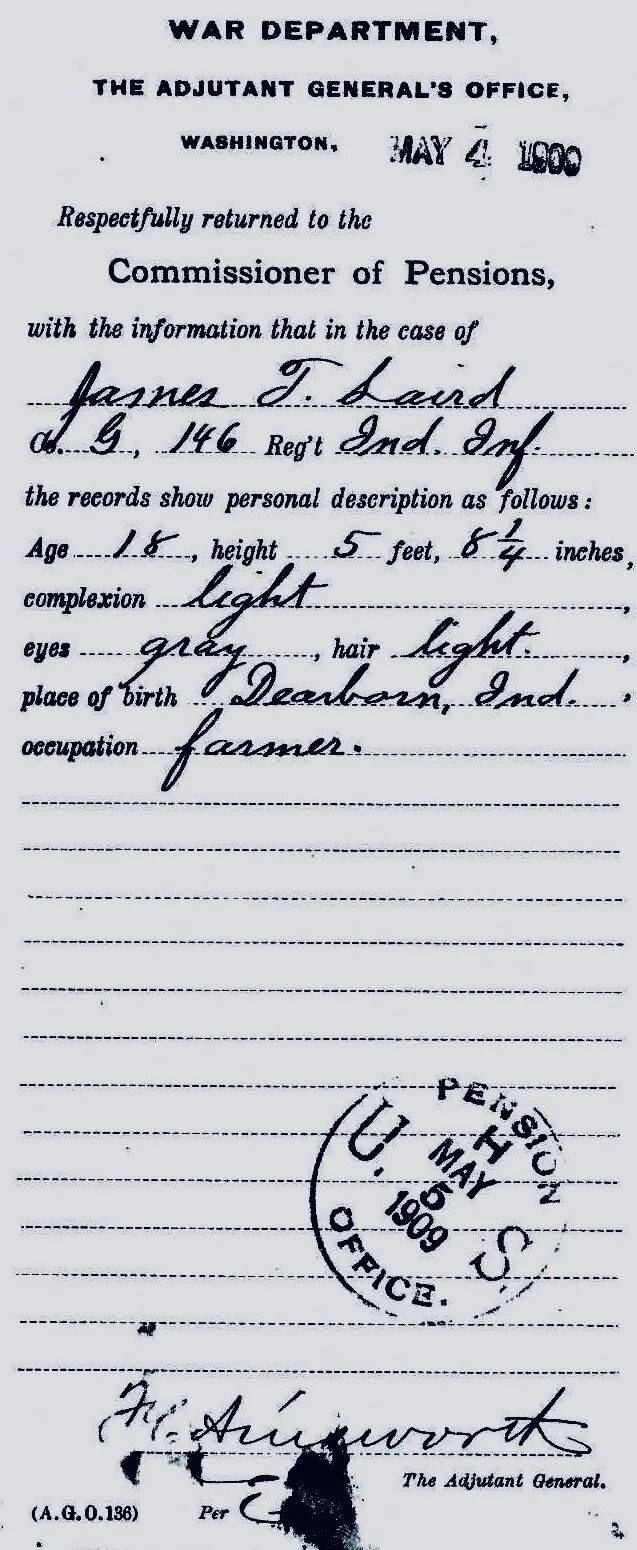 WAR DEPARTMENT,
THE ADJUTANT GENERAL'S OFFICE,
WASHINGTON, MAY 4 1909
Respectfully returned to the
Commissioner of Pensions,
with the information that in the case of
James T. Laird
Co. G, 146 Reg't Ind. Inf.
the records show personal description as follows:
Age 18, height 5 feet, 8 1/4 inches,
complexion light,
eyes gray, hair light.,
place of birth Dearborn, Ind.,
occupation farmer.
U. S. PENSION OFFICE.
H
MAY
5
1909
F. C. Ainsworth
The Adjutant General.
(A.G.O.136) Per